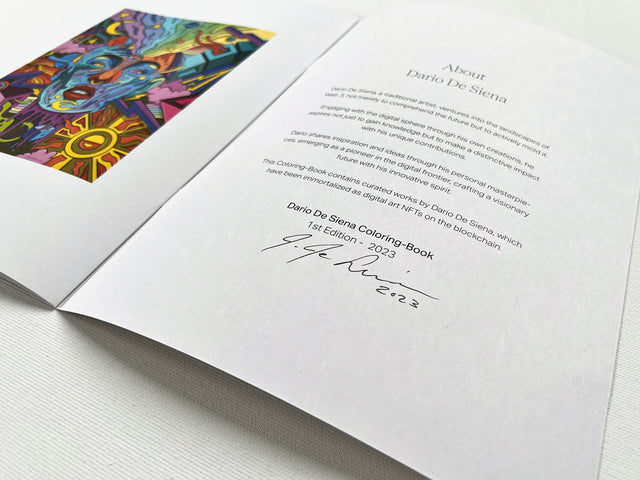 About
Dario De Siena
Dario De Siena, a traditional artist, ventures into the landscapes of
Web 3, not merely to comprehend the future but to actively mold it.
Engaging with the digital sphere through his own creations, he
aspires not just to gain knowledge but to make a distinctive impact
with his unique contributions.
Dario shares inspiration and ideas through his personal masterpie-
ces, emerging as a pioneer in the digital frontier, crafting a visionary
future with his innovative spirit.
This Coloring-Book contains curated works by Dario De Siena, which
have been immortalized as digital art NFTs on the blockchain.
Dario De Siena Coloring-Book
1st Edition - 2023
2023